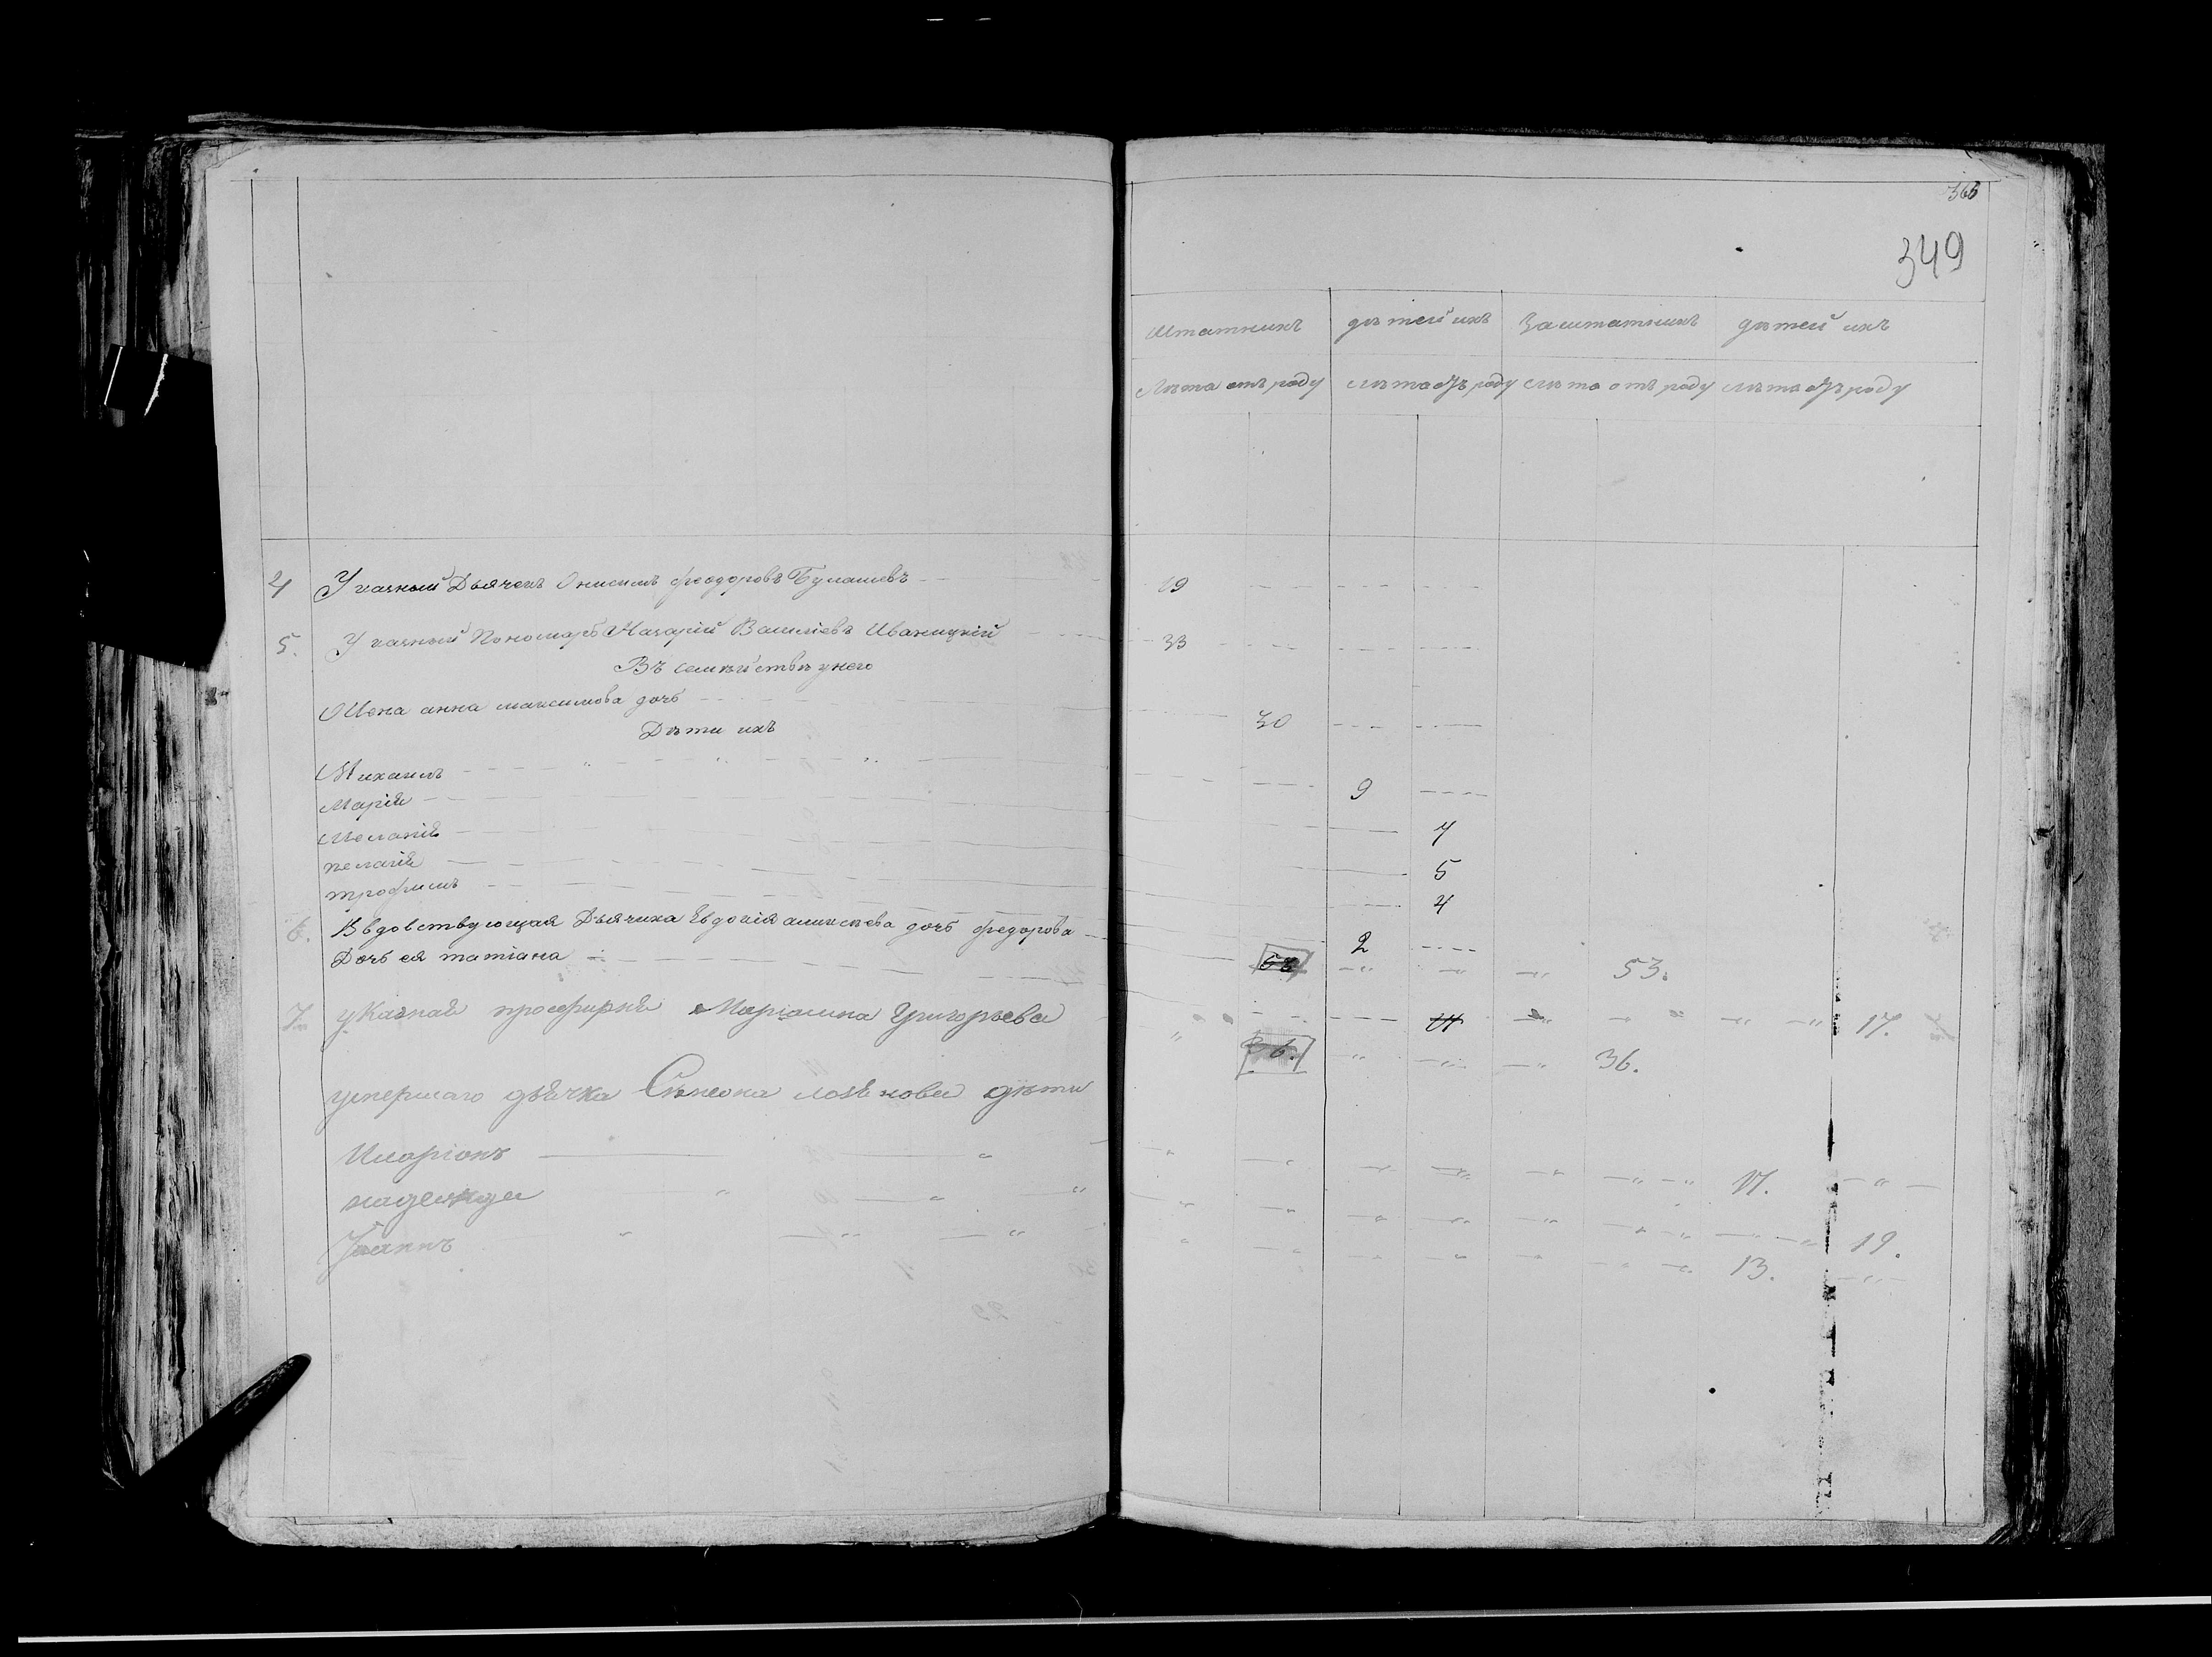 363
349
Штатнихъ дѣтей ихъ Заштатнихъ дѣтей ихъ
Лѣта отъ роду лѣта отъ роду лѣта отъ роду лѣта отъ роду
4 Указный Дьячекъ Онисимъ Феодоровъ Булашевъ 19
5. Указный Пономарь Назарій Василіевъ Иваницкій 33
Въ семѣйствѣ у него
Жена анна максимова дочь 30
Дѣти ихъ
Михаилъ 9
Марія 7
Меланія 5
пелагія 4
трофимъ 2
6. Вдовствующая Дьячиха Евдокія алексѣева дочь федорова 53.
Дочь ея татіана 17.
7. указная просфирня Маріамна Григорьева 36. 36.
умершаго дьячка Сѵмеона дѣти
Иларіонъ 17.
надежда 19.
Іоаннъ 13.